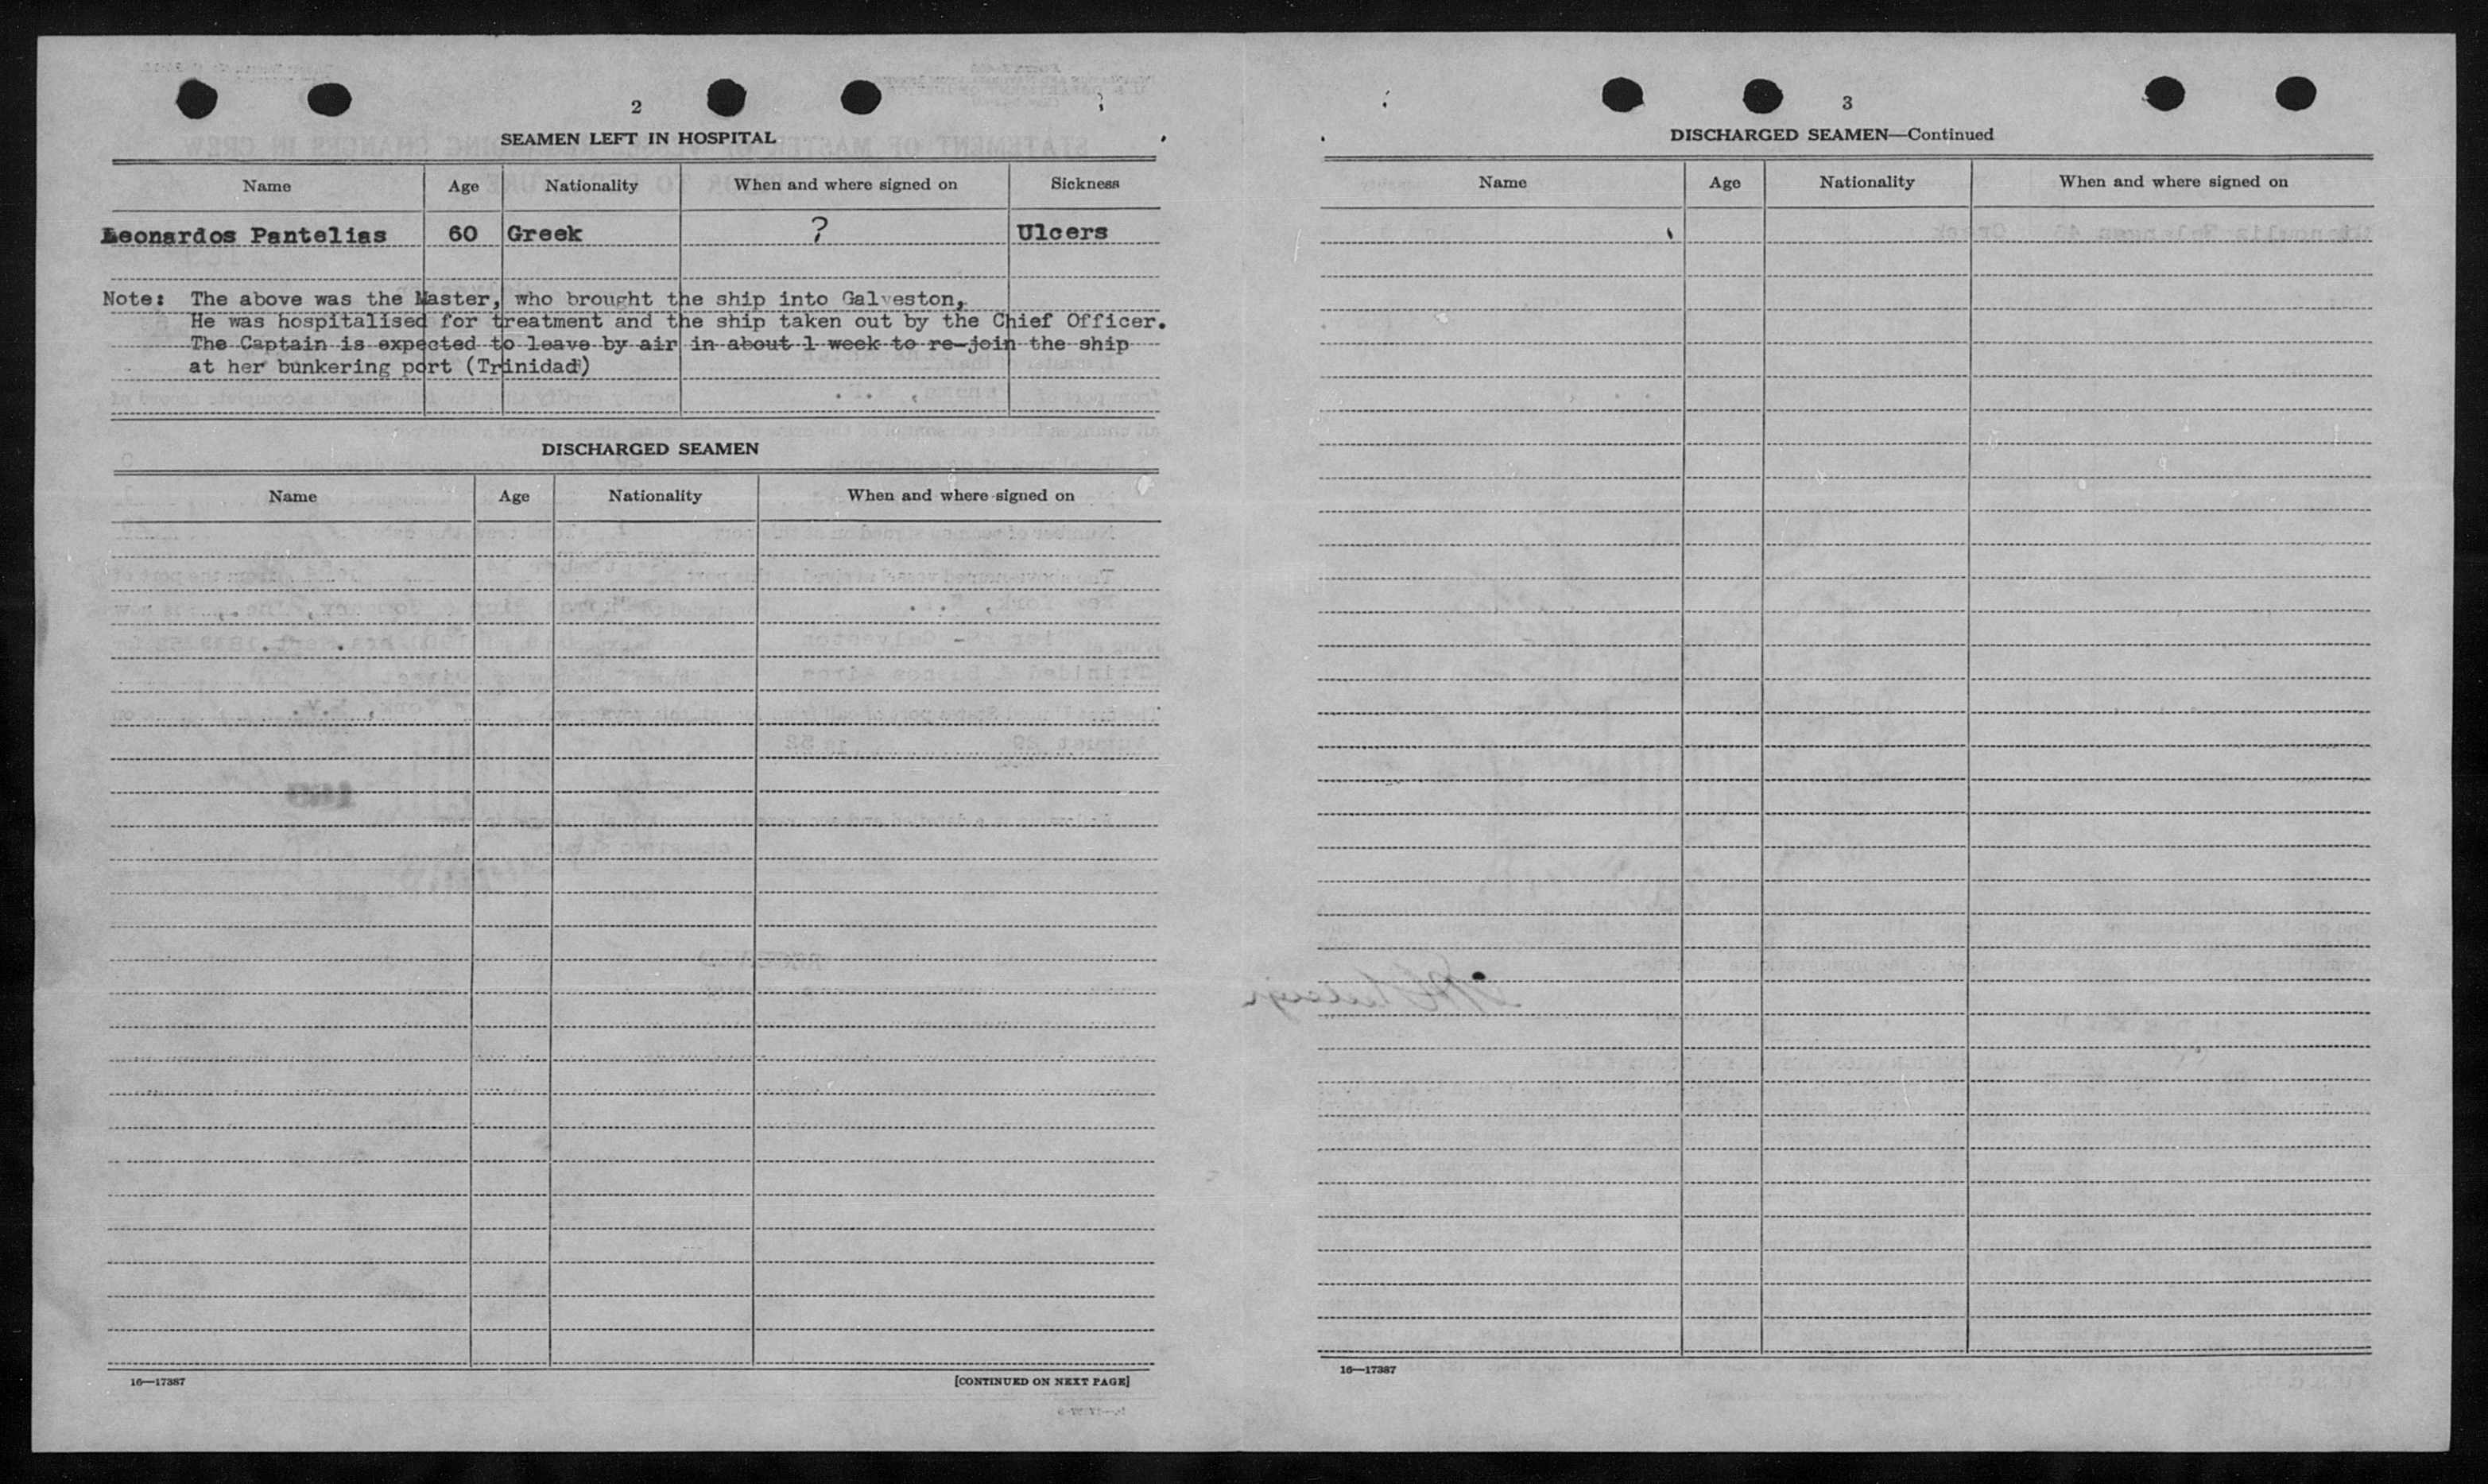 2
SEAMEN LEFT IN HOSPITAL
Name Age Nationality When and where signed on Sickness
Leonardos Pantelias 60 Greek ? Ulcers
Note: The above was the Master, who brought the ship into Galveston,
He was hospitalised for treatment and the ship taken out by the Chief Officer.
The Captain is expected to leave by air in about 1 week to re-join the ship
at her bunkering port (Trinidad)
DISCHARGED SEAMEN
Name Age Nationality When and where signed on
16—17387 [CONTINUED ON NEXT PAGE]
3
DISCHARGED SEAMEN—Continued
Name Age Nationality When and where signed on
16—17387